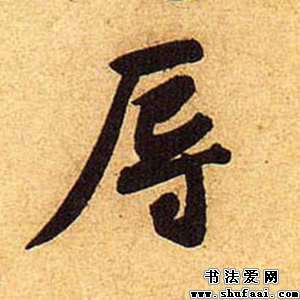 辱
书法爱网
www.shufaai.com